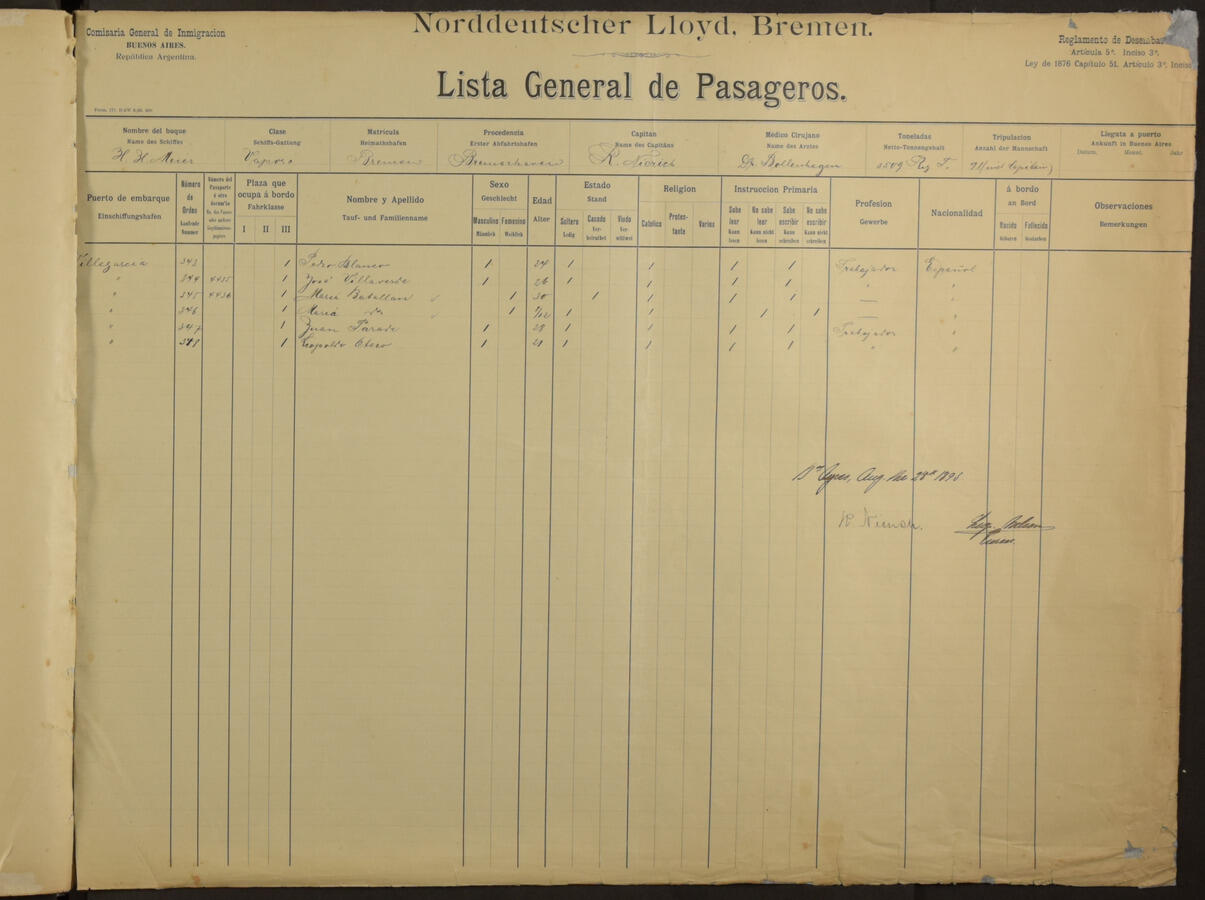 Comisaria General de Inmigracion
BUENOS AIRES.
República Argentina.
Norddeutscher Lloyd, Bremen.
Lista General de Pasageros.
Reglamento de Desembar
Artículo 5º. Inciso 3º.
Ley de 1876 Capítulo 51. Artículo 3º. Inciso
Nombre del buque
Name des Schiffes
H H Meier
Clase
Schiffs-Gattung
Vapor
Matrícula
Heimathshafen
Bremen
Procedencia
Erster Abfahrtshafen
Bremerhaven
Capitan
Name des Capitäns
R. Nierich
Médico Cirujano
Name des Arztes
Dr. Bollenhagen
Toneladas
Netto-Tonnengehalt
Reg T.
Tripulacion
Anzahl der Mannschaft
Capitan)
Llegata a puerto
Ankunft in Buenos Aires
Datum. Monat. Jahr
Puerto de embarque
Einschiffungshafen
Número de Orden
Laufende Nummer
Número del Pasaporte
Plaza que ocupa á bordo
Fahrklasse
I II III
Nombre y Apellido
Tauf- und Familienname
Sexo
Geschlecht
Masculino Femenino
Männlich Weiblich
Edad
Alter
Estado
Stand
Soltero Casado Viudo
Ledig Verheirathet Verwittwet
Religion
Catolica Protestante Varios
Instruccion Primaria
Sabe leer No sabe leer Sabe escribir No sabe escribir
Kann lesen Kann nicht lesen Kann schreiben Kann nicht schreiben
Profesion
Gewerbe
Nacionalidad
á bordo
an Bord
Nacido Fallecido
Geboren Gestorben
Observaciones
Bemerkungen
Villagarcia 343 1 Pedro Blanco 1 24 1 1 1 1 Trabajador Español
" 344 4435 1 José Villaverde 1 26 1 1 1 1 " "
" 345 4436 1 Maria Batallan 1 30 1 1 1 1 — "
" 346 1 Maria do 1 1 1 1 1 — "
" 347 1 Juan Parade 1 28 1 1 1 1 Trabajador "
" 348 1 Leopoldo Otero 1 21 1 1 1 1 " "
Bs Ayres, Aug. the 28th 189
R. Nierich.